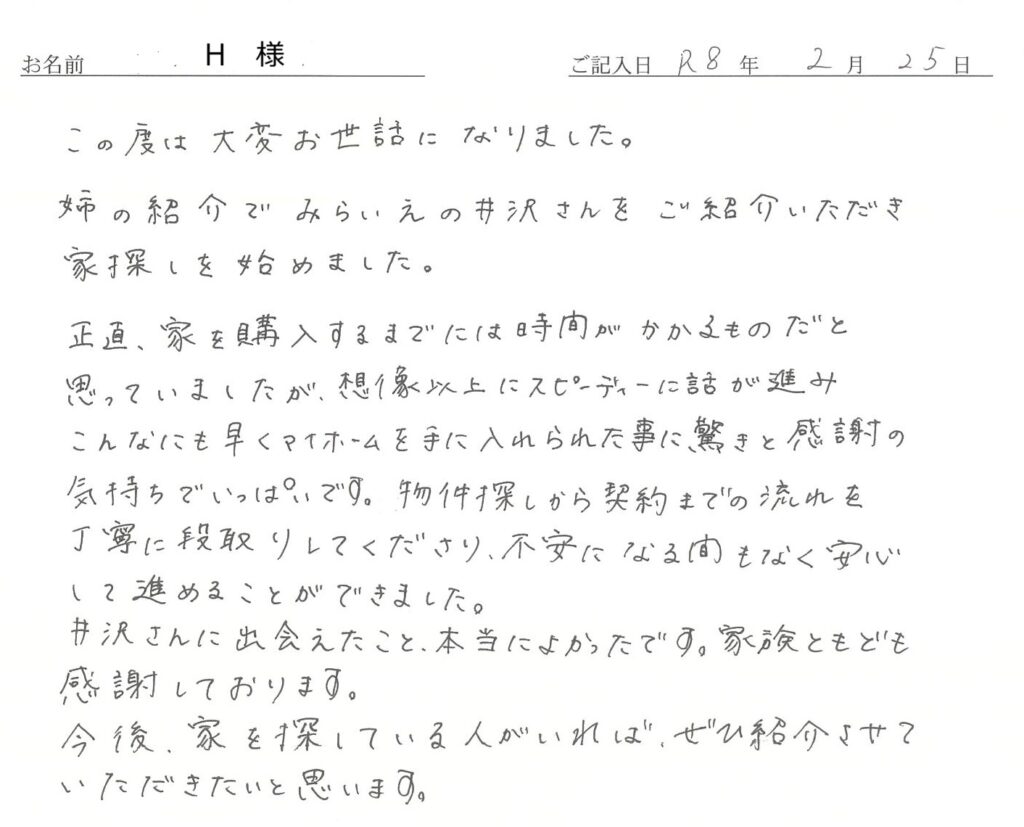 お名前 H 様 ご記入日 R8 年 2 月 25 日
この度は大変お世話になりました。
姉の紹介でみらいえの井沢さんをご紹介いただき
家探しを始めました。
正直、家を購入するまでには時間がかかるものだと
思っていましたが、想像以上にスピーディーに話が進み
こんなにも早くマイホームを手に入れられた事に驚きと感謝の
気持ちでいっぱいです。物件探しから契約までの流れを
丁寧に段取りしてくださり、不安になる間もなく安心
して進めることができました。
井沢さんに出会えたこと、本当によかったです。家族ともども
感謝しております。
今後、家を探している人がいれば、ぜひ紹介させて
いただきたいと思います。